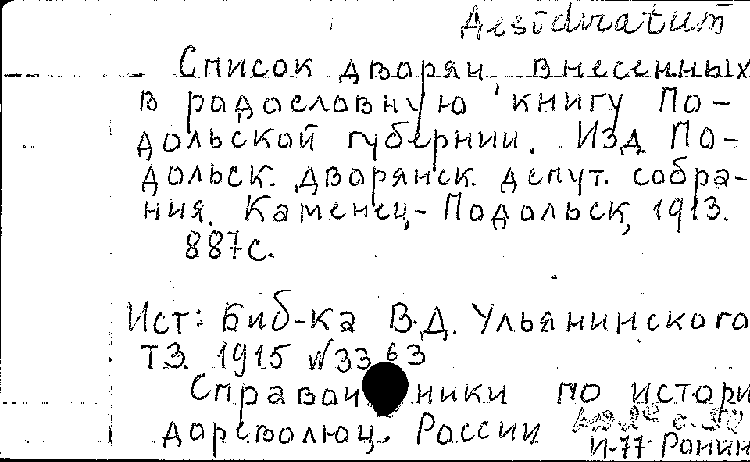 Desideratum
Список дворян внесенных
в родословную книгу По-
дольской губернии. Изд По-
дольск. дворянск. депут. собра-
ния. Каменец-Подольск, 1913.
887с.
Ист: Биб-ка В.Д. Ульянинского
Т3. 1915 №3363
Справочники по истори
дореволюц. России
И-77 Ронин